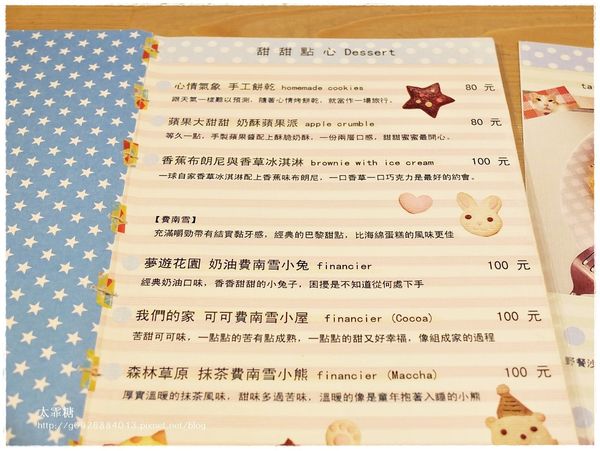 甜甜點心 Dessert
心情氣象 手工餅乾 homemade cookies 80 元
跟天氣一樣難以預測，隨著心情烤餅乾，就當作一場旅行。
蘋果大甜甜 奶酥蘋果派 apple crumble 80 元
等久一點，手製蘋果醬配上酥脆奶酥，一份兩層口感，甜甜蜜蜜最開心。
香蕉布朗尼與香草冰淇淋 brownie with ice cream 100 元
一球自家香草冰淇淋配上香蕉味布朗尼，一口香草一口巧克力是最好的約會。
【費南雪】
充滿嚼勁帶有結實黏牙感，經典的巴黎甜點，比海綿蛋糕的風味更佳
夢遊花園 奶油費南雪小兔 financier 100 元
經典奶油口味，香香甜甜的小兔子，困擾是不知道從何處下手
我們的家 可可費南雪小屋 financier (Cocoa) 100 元
苦甜可可味，一點點的苦有點成熟，一點點的甜又好幸福，像組成家的過程
森林草原 抹茶費南雪小熊 financier (Maccha) 100 元
厚實溫暖的抹茶風味，甜味多過苦味，溫暖的像是童年抱著入睡的小熊
ta
野餐沙
太乖糖